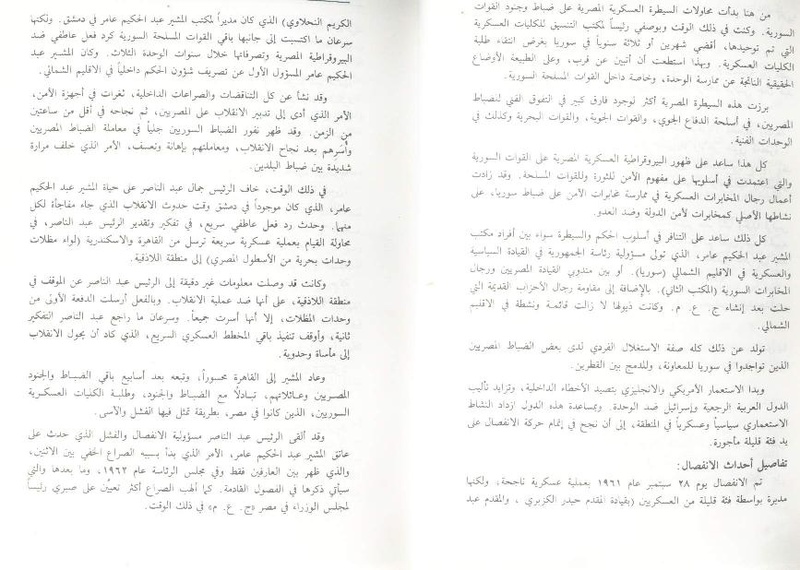 من هنا بدأت محاولات السيطرة العسكرية المصرية على ضباط وجنود القوات
السورية. وكنت في ذلك الوقت وبوصفي رئيساً لمكتب التنسيق للكليات العسكرية
التي تم توحيدها، أقضي شهرين أو ثلاثة سنوياً في سوريا بغرض انتقاء طلبة
الكليات العسكرية. وبهذا استطعت أن أتبين عن قرب، وعلى الطبيعة الأوضاع
الحقيقية الناتجة عن ممارسة الوحدة، وخاصة داخل القوات المسلحة السورية.
برزت هذه السيطرة المصرية أكثر لوجود فارق كبير في التفوق الفني للضباط
المصريين، في أسلحة الدفاع الجوي، والقوات الجوية، والقوات البحرية وكذلك في
الوحدات الفنية.
كل هذا ساعد على ظهور البيروقراطية العسكرية المصرية على القوات السورية
والتي اعتمدت في أسلوبها على مفهوم الأمن للثورة وللقوات المسلحة. وقد زادت
أعمال رجال المخابرات العسكرية في ممارسة مخابرات الأمن على ضباط سوريا، على
نشاطها الأصلي كمخابرات لأمن الدولة وضد العدو.
كل ذلك ساعد على التنافر في أسلوب الحكم والسيطرة سواء بين أفراد مكتب
المشير عبد الحكيم عامر، الذي تولى مسؤولية رئاسة الجمهورية في القيادة السياسية
والعسكرية في الاقليم الشمالي (سوريا). أو بين مندوبي القيادة المصريين ورجال
المخابرات السورية (المكتب الثاني). بالإضافة إلى مقاومة رجال الأحزاب القديمة التي
حلت بعد إنشاء ج. ع. م. وكانت ذيولها لا زالت قائمة ونشطة في الاقليم
الشمالي.
تولد عن ذلك كله صفة الاستغلال الفردي لدى بعض الضباط المصريين
الذين تواجدوا في سوريا للمعاونة، وللدمج بين القطرين.
وبدا الاستعمار الأمريكي والانجليزي بتصيد الأخطاء الداخلية، وتزايد تأليب
الدول العربية الرجعية وإسرائيل ضد الوحدة. وبمساعدة هذه الدول ازداد النشاط
الاستعماري سياسياً وعسكرياً في المنطقة، إلى أن نجح في إتمام حركة الانفصال على
يد فئة قليلة مأجورة.
تفاصيل أحداث الانفصال:
تم الانفصال يوم ٢٨ سبتمبر عام ١٩٦١ بعملية عسكرية ناجحة، ولكنها
مدبرة بواسطة فئة قليلة من العسكريين (بقيادة المقدم حيدر الكزبري، والمقدم عبد
الكريم النحلاوي) الذي كان مديراً لمكتب المشير عبد الحكيم عامر في دمشق. ولكنها
سرعان ما اكتسبت إلى جانبها باقي القوات المسلحة السورية كرد فعل عاطفي ضد
البيروقراطية المصرية وتصرفاتها خلال سنوات الوحدة الثلاث. وكان المشير عبد
الحكيم عامر المسؤول الأول عن تصريف شؤون الحكم داخلياً في الاقليم الشمالي.
وقد نشأ عن كل التناقضات والصراعات الداخلية، ثغرات في أجهزة الأمن،
الأمر الذي أدى إلى تدبير الانقلاب على المصريين، ثم نجاحه في أقل من ساعتين
من الزمن. وقد ظهر نفور الضباط السوريين جلياً في معاملة الضباط المصريين
وأسرهم بعد نجاح الانقلاب، ومعاملتهم بإهانة وتعسف، الأمر الذي خلف مرارة
شديدة بين ضباط البلدين.
في ذلك الوقت، خاف الرئيس جمال عبد الناصر على حياة المشير عبد الحكيم
عامر، الذي كان موجوداً في دمشق وقت حدوث الانقلاب الذي جاء مفاجأة لكل
منهما. وحدث رد فعل عاطفي سريع، في تفكير وتقدير الرئيس عبد الناصر، في
محاولة القيام بعملية عسكرية سريعة ترسل من القاهرة والاسكندرية (لواء مظلات
وحدات بحرية من الأسطول المصري) إلى منطقة اللاذقية.
وكانت قد وصلت معلومات غير دقيقة إلى الرئيس عبد الناصر عن الموقف في
منطقة اللاذقية، على أنها ضد عملية الانقلاب. وبالفعل أرسلت الدفعة الأولى من
وحدات المظلات، إلا أنها أسرت جميعاً. وسرعان ما راجع عبد الناصر التفكير
ثانية، وأوقف تنفيذ باقي المخطط العسكري السريع، الذي كاد أن يحول الانقلاب
إلى مأساة وحدوية.
وعاد المشير إلى القاهرة محسوراً، وتبعه بعد أسابيع باقي الضباط والجنود
المصريين وعائلاتهم، تبادلاً مع الضباط والجنود، وطلبة الكليات العسكرية
السوريين، الذين كانوا في مصر، بطريقة تمثل فيها الفشل والأسى.
وقد ألقى الرئيس عبد الناصر مسؤولية الانفصال والفشل الذي حدث على
عاتق المشير عبد الحكيم عامر، الأمر الذي بدأ بسببه الصراع الخفي بين الاثنين،
والذي ظهر بين العارفين فقط وفي مجلس الرئاسة عام ١٩٦٢، وما بعدها والتي
سيأتي ذكرها في الفصول القادمة. كما ألهب الصراع أكثر تعيين على صبري رئيساً
لمجلس الوزراء في مصر «ج. ع. م» في ذلك الوقت.